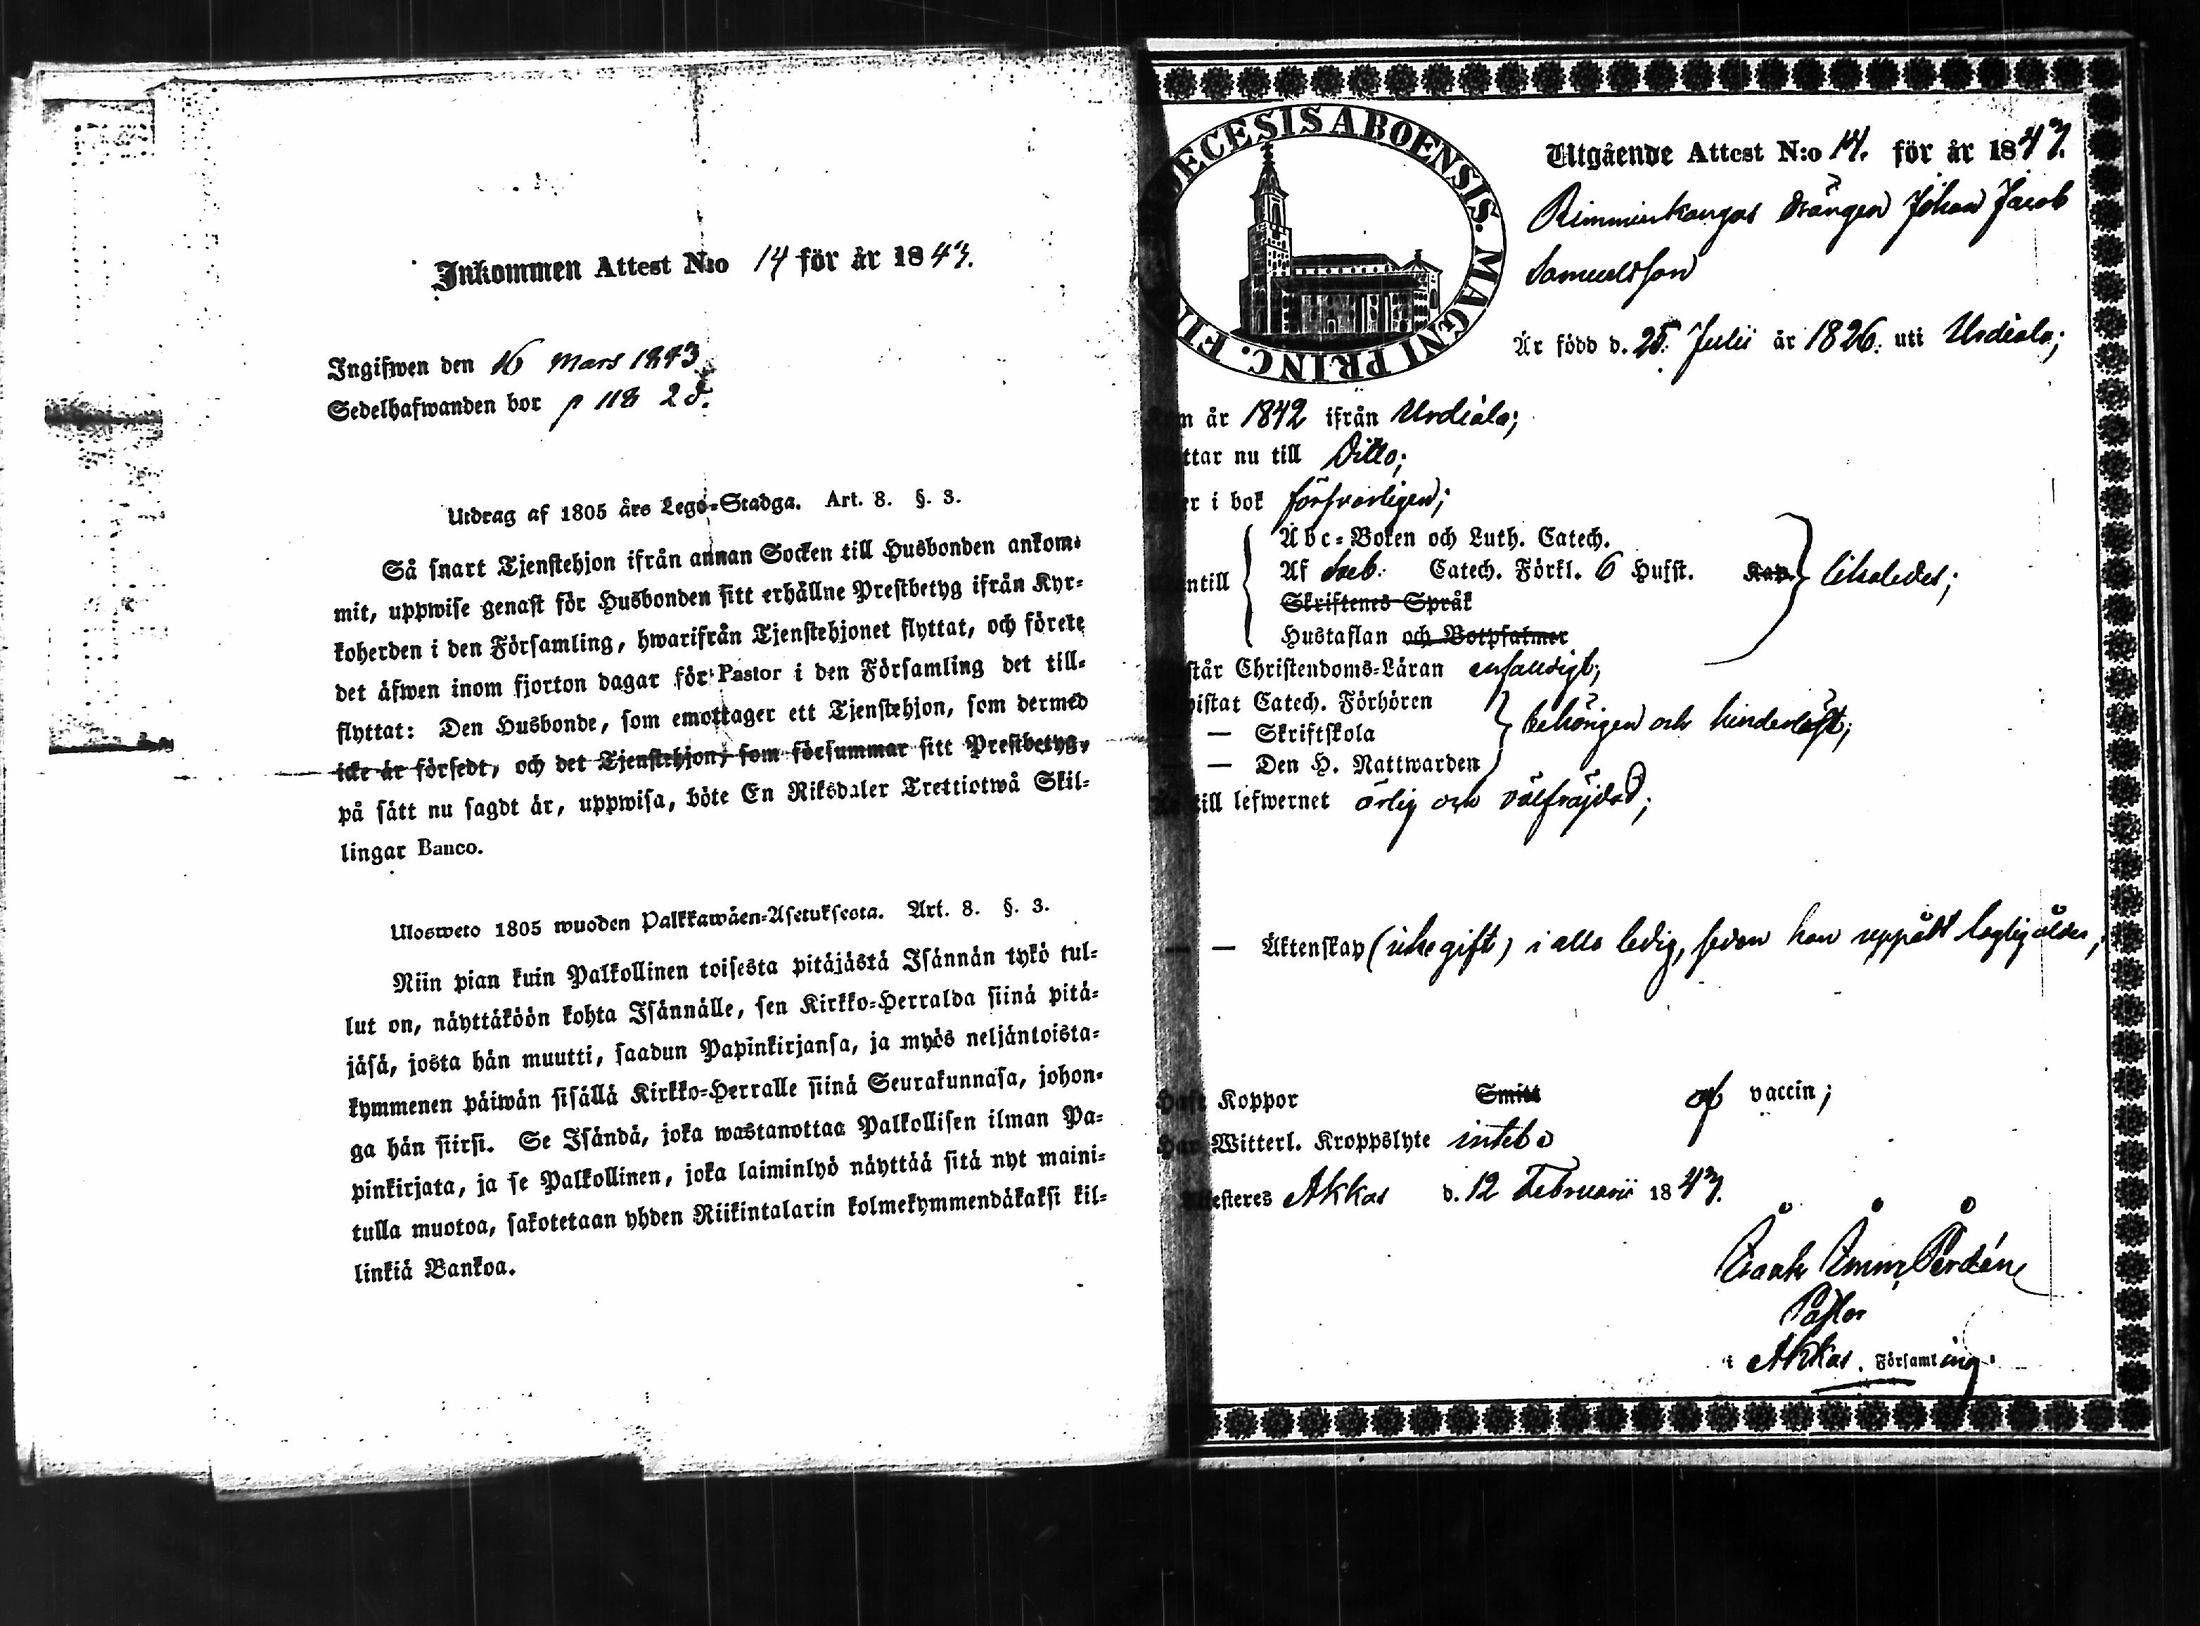 Inkommen Attest N:o 14 för år 1843.
Ingifwen den 16 Mars 1843
Sedelhafwanden bor p 118 2 d.
Utdrag af 1805 års Lego-Stadga. Art. 8. §. 3.
Så snart Tjenstehjon ifrån annan Socken till Husbonden ankom-
mit, uppwise genast för Husbonden sitt erhållne Prestbetyg ifrån Kyr-
koherden i den Församling, hwarifrån Tjenstehjonet flyttat, och förete
det äfwen inom fjorton dagar för Pastor i den Församling det till-
flyttat: Den Husbonde, som emottager ett Tjenstehjon, som dermed
icke är försedt, och det Tjenstehjon, som försummar sitt Prestbetyg,
på sätt nu sagdt är, uppwisa, böte En Riksdaler Trettiotwå Skil-
lingar Banco.
Ulosweto 1805 wuoden Palkkawäen-Asetuksesta. Art. 8. §. 3.
Niin pian kuin Palkollinen toisesta pitäjästä Isännän tykö tul-
lut on, näyttäköön kohta Isännälle, sen Kirkko-Herralda siinä pitä-
jäsä, josta hän muutti, saadun Papinkirjansa, ja myös neljäntoista-
kymmenen päiwän sisällä Kirkko-Herralle siinä Seurakunnasa, johon-
ga hän siirsi. Se Isändä, joka wastanottaa Palkollisen ilman Pa-
pinkirjata, ja se Palkollinen, joka laiminlyö näyttää sitä nyt maini-
tulla muotoa, sakotetaan yhden Riikintalarin kolmekymmendäkaksi kil-
linkiä Bankoa.
DECESIS ABOENSIS. MAGNI PRINC. FIN
Utgående Attest N:o 14. för år 1843.
Rimminkangas drängen Johan Jacob
Samuelsson
Är född d. 25. Julii år 1826. uti Urdiala;
m år 1842 ifrån Urdiala;
ttar nu till Ditto;
er i bok försvarligen;
ntill
Abc-Boken och Luth. Catech.
Af Sveb. Catech. Förkl. 6 Hufst. Kap. likaledes;
Skriftenes Språk
Hustaflan och Botpsalmer
står Christendoms-Läran enfaldigt;
istat Catech. Förhören
— Skriftskola behörigen och hinderlöst;
— Den H. Nattwarden
till lefwernet ärlig och välfräjdad;
— — Äktenskap (icke gift) i allo ledig, sedan han uppnått laglig ålder;
Haft Koppor Smitt af vaccin;
Har Witterl. Kroppslyte intet
Attesteres Akkas d. 12 Februarii 1843.
Isaak Emm. Perdén
Pastor
i Akkas Församling.